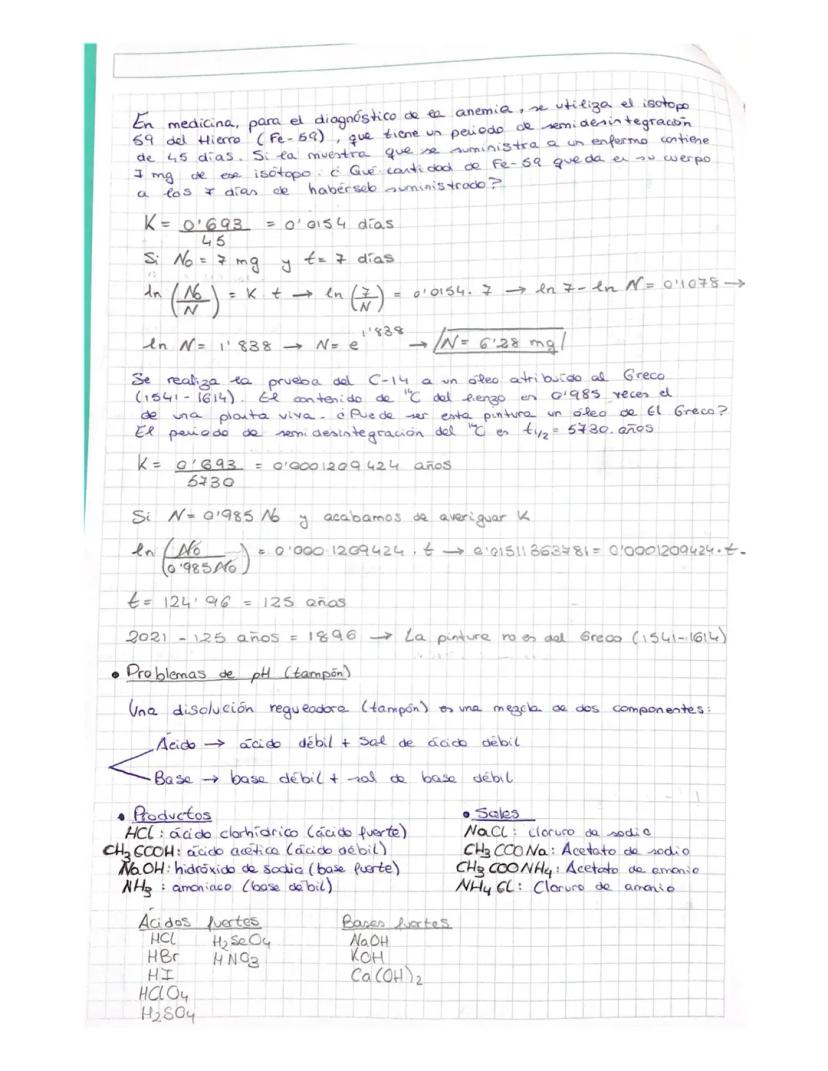 En medicina, para el diagnóstico de la anemia, se utiliza el isotopo
59 del Hierro (Fe-59), que tiene un periodo de semidesintegración
de 45 días. Si la muestra que se suministra a un enfermo contiene
7 mg de ese isótopo. ¿Qué cantidad de Fe-59 queda en su cuerpo
a los 7 días de habérselo suministrado?
K = 0'693 / 45 = 0'0154 días
Si N₀ = 7 mg y t = 7 días
ln (N₀/N) = K t → ln (7/N) = 0'0154 · 7 → ln 7 - ln N = 0'1078 →
ln N = 1'838 → N = e^1'838 → N = 6'28 mg
Se realiza la prueba del C-14 a un óleo atribuído al Greco
(1541-1614). El contenido de ¹⁴C del lienzo es 0'985 veces el
de una planta viva. ¿Puede ser esta pintura un óleo de El Greco?
El periodo de semidesintegración del ¹⁴C es t₁/₂ = 5730 años
K = 0'693 / 5730 = 0'0001209424 años
Si N = 0'985 N₀ y acabamos de averiguar K
ln (N₀ / 0'985 N₀) = 0'0001209424 · t → 0'01511363781 = 0'0001209424 · t -
t = 124'96 = 125 años
2021 - 125 años = 1896 → La pintura no es del Greco (1541-1614)
• Problemas de pH (tampón)
Una disolución regueadora (tampón) es una mezcla de dos componentes:
Ácido → ácido débil + Sal de ácido débil
Base → base débil + sal de base débil
• Productos
HCl : ácido clorhídrico (ácido fuerte)
CH₃COOH : ácido acético (ácido débil)
NaOH : hidróxido de sodio (base fuerte)
NH₃ : amoniaco (base débil)
• Sales
NaCl : Cloruro de sodio
CH₃COONa : Acetato de sodio
CH₃COONH₄ : Acetato de amonio
NH₄Cl : Cloruro de amonio
Ácidos fuertes
HCl H₂SeO₄
HBr HNO₃
HI
HClO₄
H₂SO₄
Bases fuertes
NaOH
KOH
Ca(OH)₂